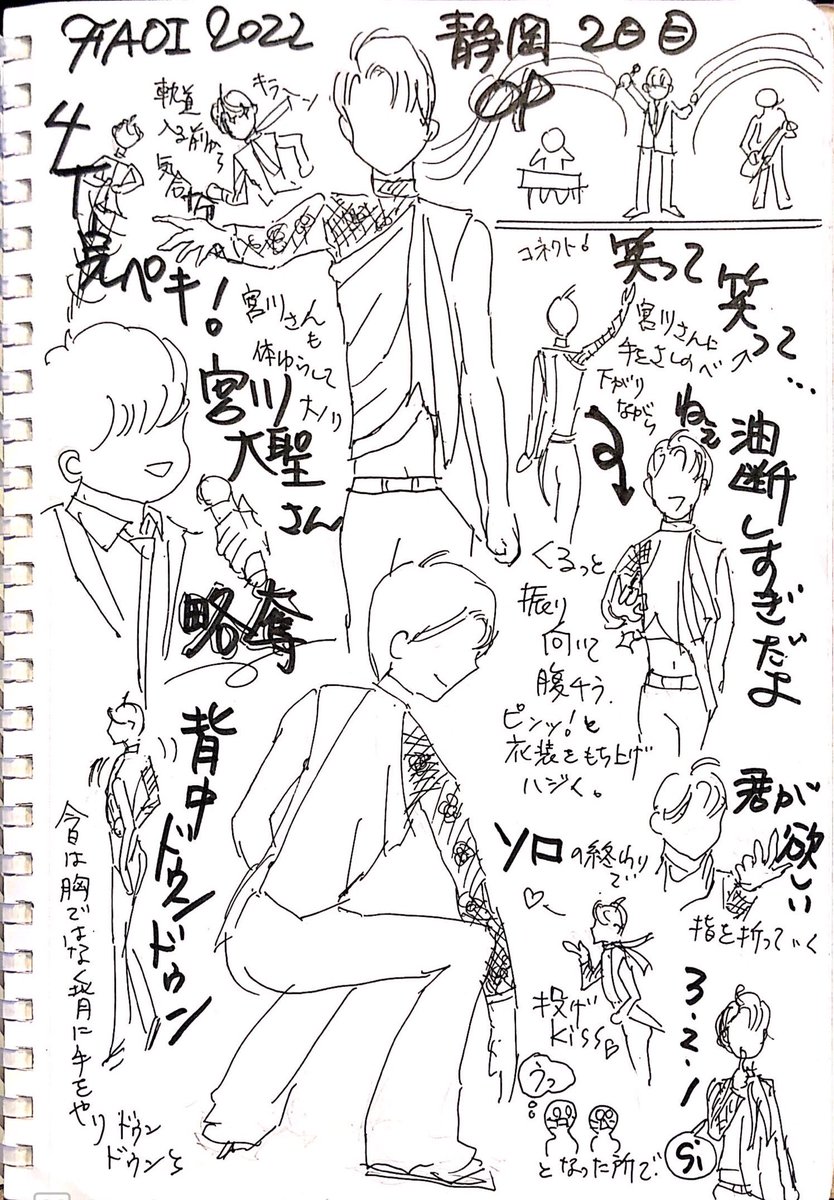 FAOI 2022
静岡 2日目
OP
4T
完ペキ!
軌道
入る前から
気合十分
キラーン
宮川さん
も
体ゆらして
大ノリ
宮川
大聖
さん
略奪
コネクト!
笑って
笑って
...
宮川さんに
手をさしのべ
下がり
ながら
ねぇ
油断しすぎだよ
くるっと
振り
向いて
腹チラ
ピンッ!と
衣装をもち上げ
ハジく。
背中
ドゥンドゥン
今日は胸ではなく背に手をやり
ドゥン
ドゥンと
君が
欲しい
指を折っていく
ソロの終わり
で
投げ
Kiss
うっ
となった所で
3.2.1
Si